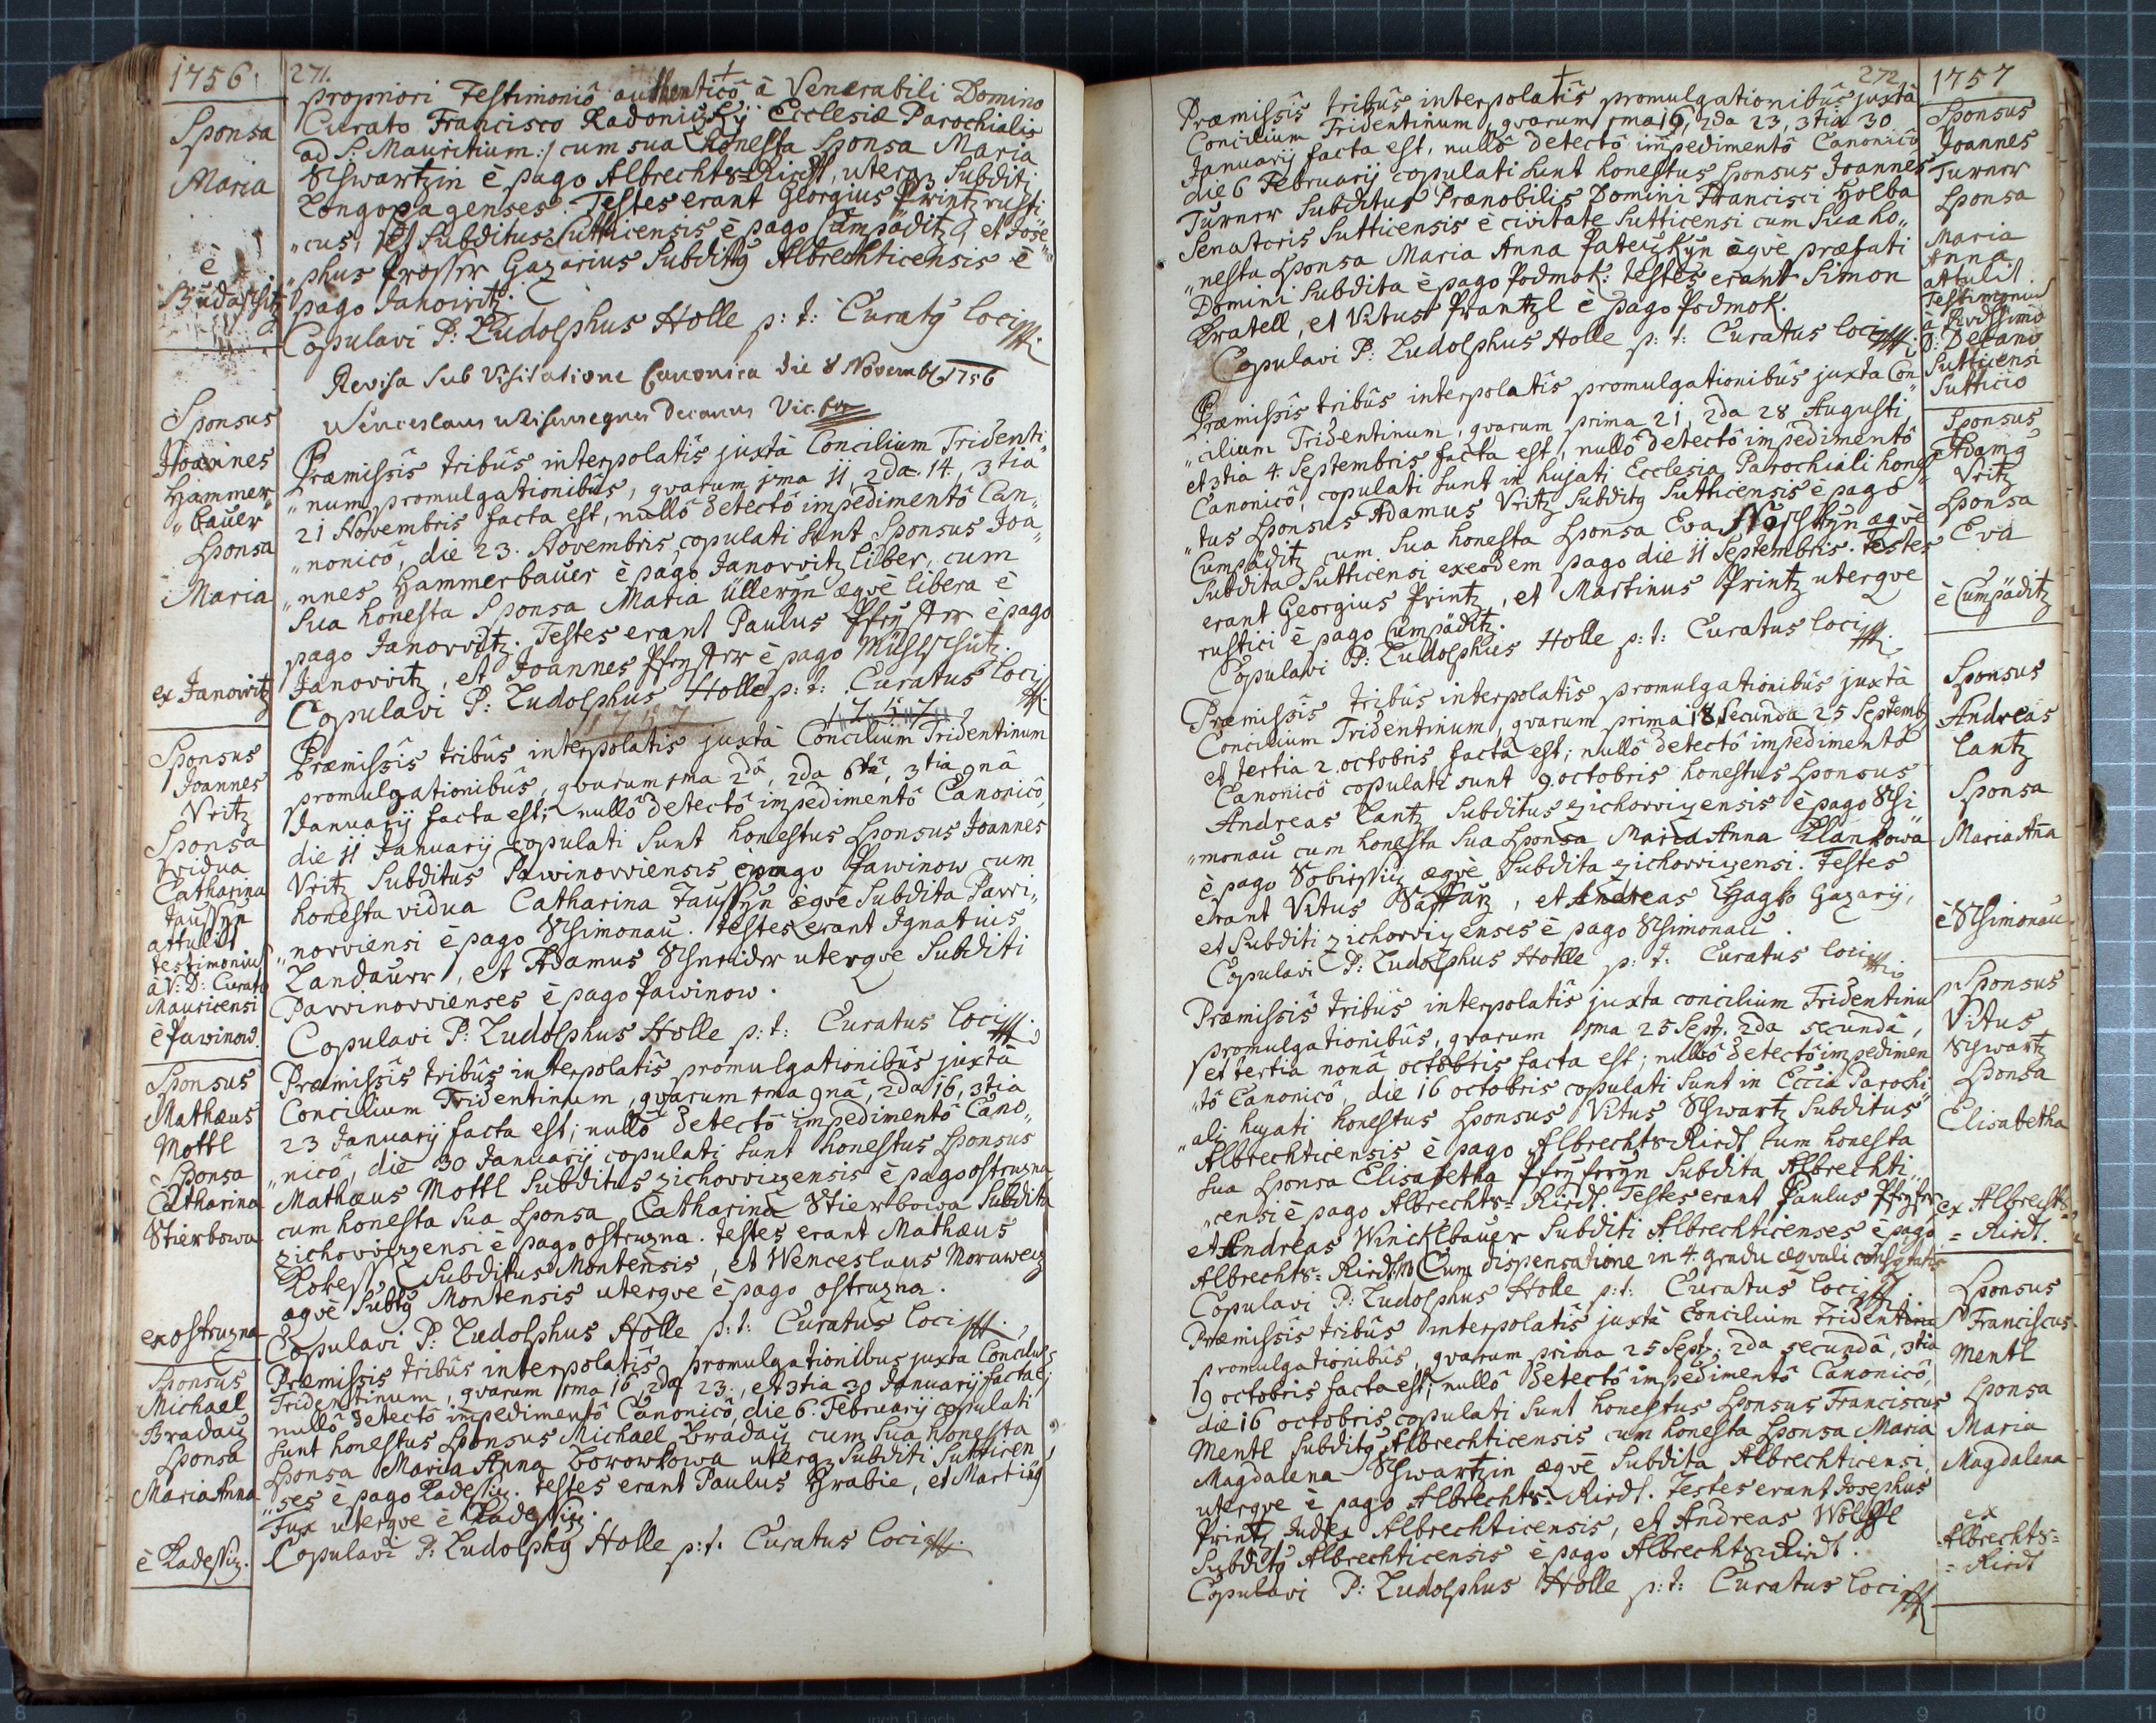 1756.
271.
Sponsa
Maria
è
Budaschitz
propriori Testimoniô authenticô à Venerabili Domino
Curato Francisco Radonizkÿ Ecclesiæ Parochialis
ad S: Mauritium :/ cum sua Honesta Sponsa Maria
Schwartzin è pago Albrechts=Riedt, uterq Subditi
Longopagenses. Testes erant Georgius Printz rusti
"cus, et Subditus Sutticensis è pago Cumpäditz, et Jose"
"phus Prosser Gazarius Subditq Albrechticensis è
pago Janowitz.
Copulavi P: Ludolphus Holle p: t: Curatq loci
Revisa sub Visitatione Canonica die 8 Novemb 1756
Wenceslaus Decanus Vic. For
Sponsus
Joannes
Hammer
"bauer
Sponsa
Maria
ex Janowitz
Præmissis tribûs interpolatis juxtà Concilium Tridenti
"num promulgationibûs, qvarum 1ma 11, 2da 14, 3tia
21 Novembris facta est, nullô detectô impedimentô Can"
"nonicô, die 23. Novembris, copulati sunt Sponsus Joa"
"nnes Hammerbauer è pago Janowitz liber, cum
sua honesta Sponsa Maria Üllerÿn æqvè libera è
pago Janowitz. Testes erant Paulus Pfeÿffer è pago
Janowitz, et Joannes Pfeÿffer è pago
Copulavi P: Ludolphus Holle p: t: Curatus loci
1757
Sponsus
Joannes
Vritz
Sponsa
vidua
Catharina
Taussÿn
attulit
testimoniu
à V: D: Curato
Mauricensi
è Pawinow.
Præmissis tribûs interpolatis juxtà Concilium Tridentinum
promulgationibûs, qvarum 1ma 2dâ, 2da 6tâ, 3tia 9nâ
Januarij facta est; nullô detectô impedimentô Canonicô,
die 11 Januarij copulati sunt honestus Sponsus Joannes
Vritz Subditus Pawinowiensis è pago Pawinow cum
honesta vidua Catharina Taussÿn æqvè Subdita Pawi"
"nowiensi è pago Schimonau. testes erant Ignatius
Landauer, et Adamus Schneider uterqve Subditi
Pawinowienses è pago Pawinow.
Copulavi P: Ludolphus Holle p: t: Curatus loci
Sponsus
Mathæus
Mottl
Sponsa
Catharina
Stierbowa
ex ostruzna
Præmissis tribûs interpolatis promulgationibûs juxtà
Concilium Tridentinum, qvarum 1ma 9nâ, 2da 16, 3tia
23 Januarij facta est; nullô detectô impedimentô Cano"
"nicô, die 30 Januarij copulati sunt honestus Sponsus
Mathæus Mottl Subditus zichowizensis è pago ostruzna
cum honesta sua Sponsa Catharina Stierbowa Subdita
zichowizensi è pago ostruzna. testes erant Mathæus
Kobess Subditus Montensis, et Wenceslaus Morawetz
æqvè Subtq Montensis uterqve è pago ostruzna.
Copulavi P: Ludolphus Holle p: t: Curatus loci
Sponsus
Michael
Bradatz
Sponsa
Maria Anna
è Radessiz.
Præmissis tribûs interpolatis promulgationibus juxta Concilium
Tridentinum, qvarum 1ma 16, 2da 23, et 3tia 30 Januarij facta e;
nullô detectô impedimentô Canonicô, die 6. Februarij copulati
sunt honestus Sponsus Michael Bradatz cum sua honesta
Sponsa Maria Anna Borowkowa uterq Subditi Sutticen"
"ses è pago Radessiz. testes erant Paulus Hrabie, et Martinq
Fux uterqve è Radessiz.
Copulavi P: Ludolphq Holle p: t: Curatus loci
272
1757
Præmissis tribûs interpolatis promulgationibûs juxtà
Concilium Tridentinum, qvarum 1ma 16, 2da 23, 3tia 30
Januarij facta est, nullô detectô impedimentô Canonicô
die 6 Februarij copulati sunt honestus Sponsus Joannes
Turner Subditus Prænobilis Domini Francisci Holba
Senatoris Sutticensis è civitate Sutticensi cum sua ho"
"nesta Sponsa Maria Anna Pateizkÿn æqvè præfati
Domini Subdita è pago Podmok. testes erant Simon
Kratell, et Vitus Prantzl è pago Podmok.
Copulavi P: Ludolphus Holle p: t: Curatus loci
Sponsus
Joannes
Turner
Sponsa
Maria
Anna
attulit
Testimoniu
à Rvdssimo
D: Decano
Sutticensi
Sutticio
Præmissis tribûs interpolatis promulgationibûs juxta Con
"cilium Tridentinum, qvarum prima 21, 2da 28 Augusti,
et 3tia 4. Septembris facta est, nullô detectô impedimentô
Canonicô, copulati sunt in hujati Ecclesia Parochiali hones
"tus Sponsus Adamus Vritz Subditq Sutticensis è pago
Cumpäditz cum sua honesta Sponsa Eva æqvè
Subdita Sutticensi ex eodem pago die 11 Septembris. Testes
erant Georgius Printz, et Martinus Printz uterqve
rustici è pago Cumpäditz.
Copulavi P: Ludolphus Holle p: t: Curatus loci
Sponsus
Adamq
Vritz
Sponsa
Eva
è Cumpäditz
Præmissis tribûs interpolatis promulgationibûs juxtà
Concilium Tridentinum, qvarum prima 18 Secunda 25 Septemb
et tertia 2. octobris facta est; nullô detectô impedimentô
Canonicô copulati sunt 9 octobris honestus Sponsus
Andreas Lantz Subditus zichowizensis è pago Schi"
"monau cum honesta sua Sponsa Maria Anna Plankowa
è pago æqvè Subdita zichowizensi. Testes
erant Vitus Saffarz, et Andreas Hagk Gazarij,
et Subditi zichowizenses è pago Schimonau.
Copulavi P: Ludolphus Holle p: t: Curatus loci
Sponsus
Andreas
Lantz
Sponsa
Maria Aña
è Schimonau.
Præmissis tribûs interpolatis juxta concilium Tridentinu
promulgationibûs, qvarum 1ma 25 Sept. 2da secundâ,
et tertia nonâ octobris facta est; nullô detectô impedimen
"tô Canonicô, die 16 octobris copulati sunt in Eccia Parochi"
"ali hujati honestus Sponsus Vitus Schwartz Subditus
Albrechticensis è pago Albrechts Riedt cum honesta
sua Sponsa Elisabetha Pfeÿfferÿn Subdita Albrechti"
"censi è pago Albrechts=Riedt. Testes erant Paulus Pfeÿfer
et Andreas Wincklbauer Subditi Albrechticenses è pago
Albrechts=Riedt. Cum dispensatione in 4 gradu æqvali
Copulavi P: Ludolphus Holle p: t: Curatus loci
Sponsus
Vitus
Schwartz
Sponsa
Elisabetha
ex Albrechts=
=Riedt.
Præmissis tribûs interpolatis juxtà concilium Tridentinu
promulgationibûs, qvarum prima 25 Sept: 2da secundâ, 3tia
9 octobris facta est; nullô detectô impedimentô Canonicô,
die 16 octobris copulati sunt honestus Sponsus Franciscus
Mentl Subditq Albrechticensis cum honesta Sponsa Maria
Magdalena Schwartzin æqvè Subdita Albrechticensi,
uterqve è pago Albrechts=Riedt. Testes erant Josephus
Printz Judex Albrechticensis, et Andreas Wölffl
Subditq Albrechticensis è pago Albrechts Riedt.
Copulavi P: Ludolphus Holle p: t: Curatus loci
Sponsus
Franciscus
Mentl
Sponsa
Maria
Magdalena
ex
Albrechts=
=Riedt